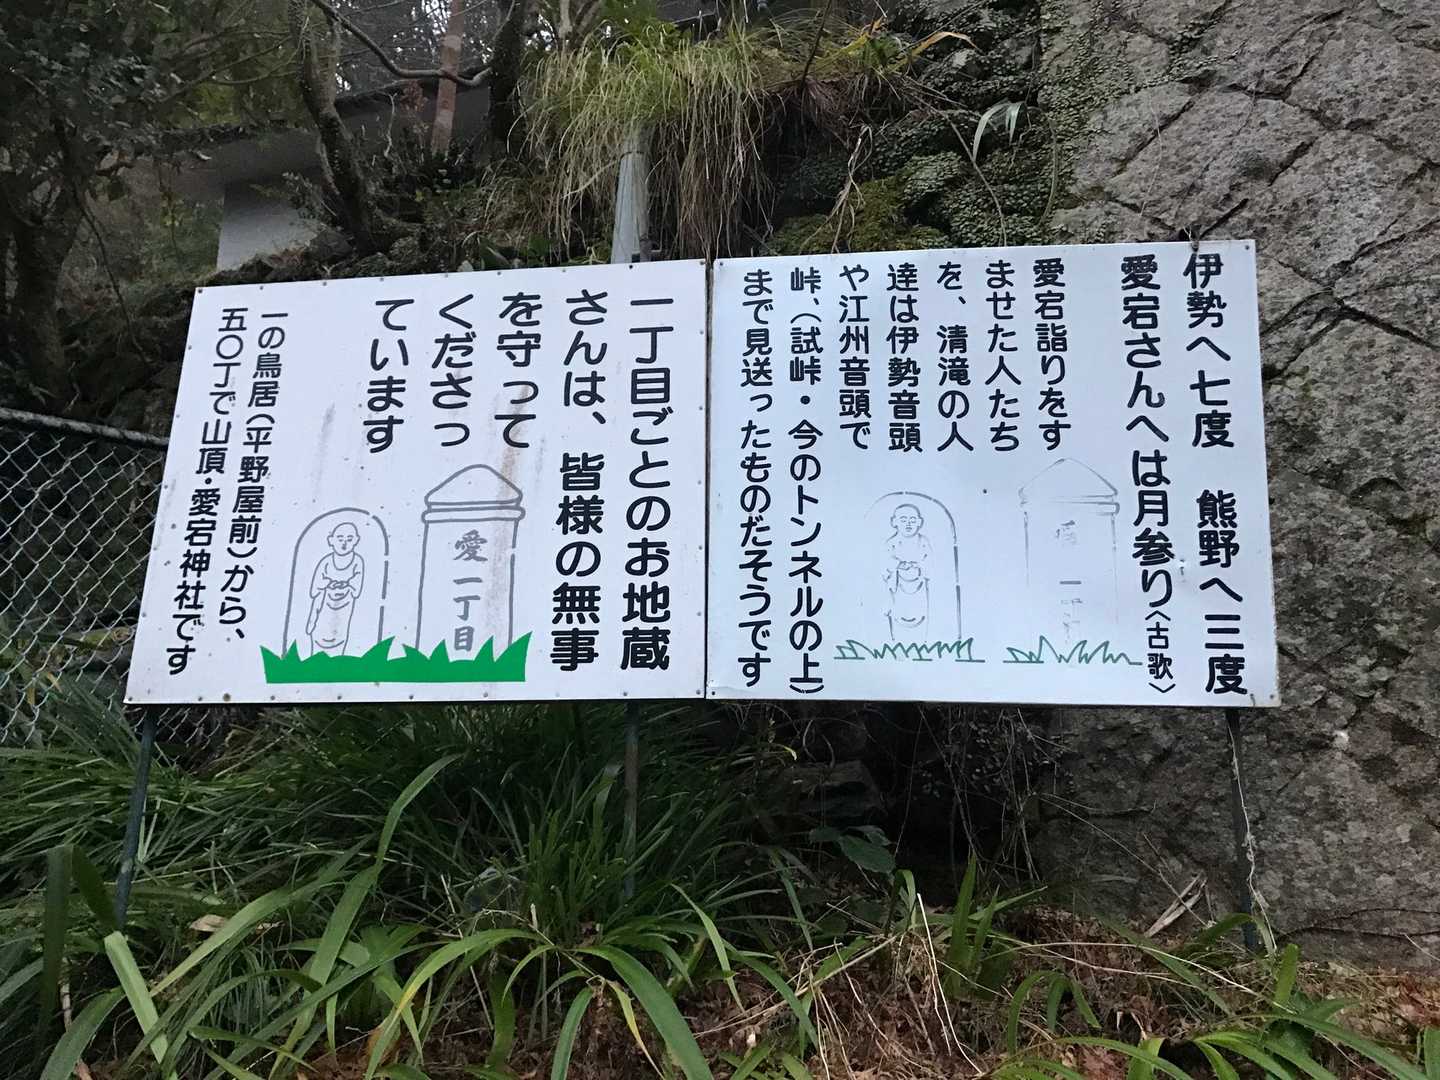 伊勢へ七度 熊野へ三度
愛宕さんへは月参り〈古歌〉
愛宕詣りをす
ませた人たち
を、清滝の人
達は伊勢音頭
や江州音頭で
峠、（試峠・今のトンネルの上）
まで見送ったものだそうです
一丁目ごとのお地蔵
さんは、皆様の無事
を守って
くださっ
ています
愛一丁目
一の鳥居（平野屋前）から、
五〇丁で山頂・愛宕神社です